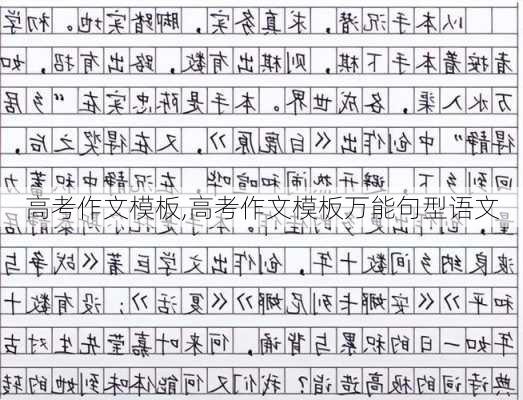 以本手沉潜，求真务实，脚踏实地。初学
者按着本手下棋，则棋出有数，路出有招，如
万水入渠，各成世界。本手是陈忠实在“乡居
得静”中创作出《白鹿原》，又在得奖之后，
回到乡下，避开热闹和喧哗，在沉静中积蓄力
高考作文模板,高考作文模板万能句型语文
波良纳乡间数十年，创作出文学巨著《战争与
和平》《安娜卡列尼娜》《复活》；没有数十
年如一日的积累与背诵，何来叶嘉莹先生对古
典诗词的极高造诣？我们又何能体味到她的转